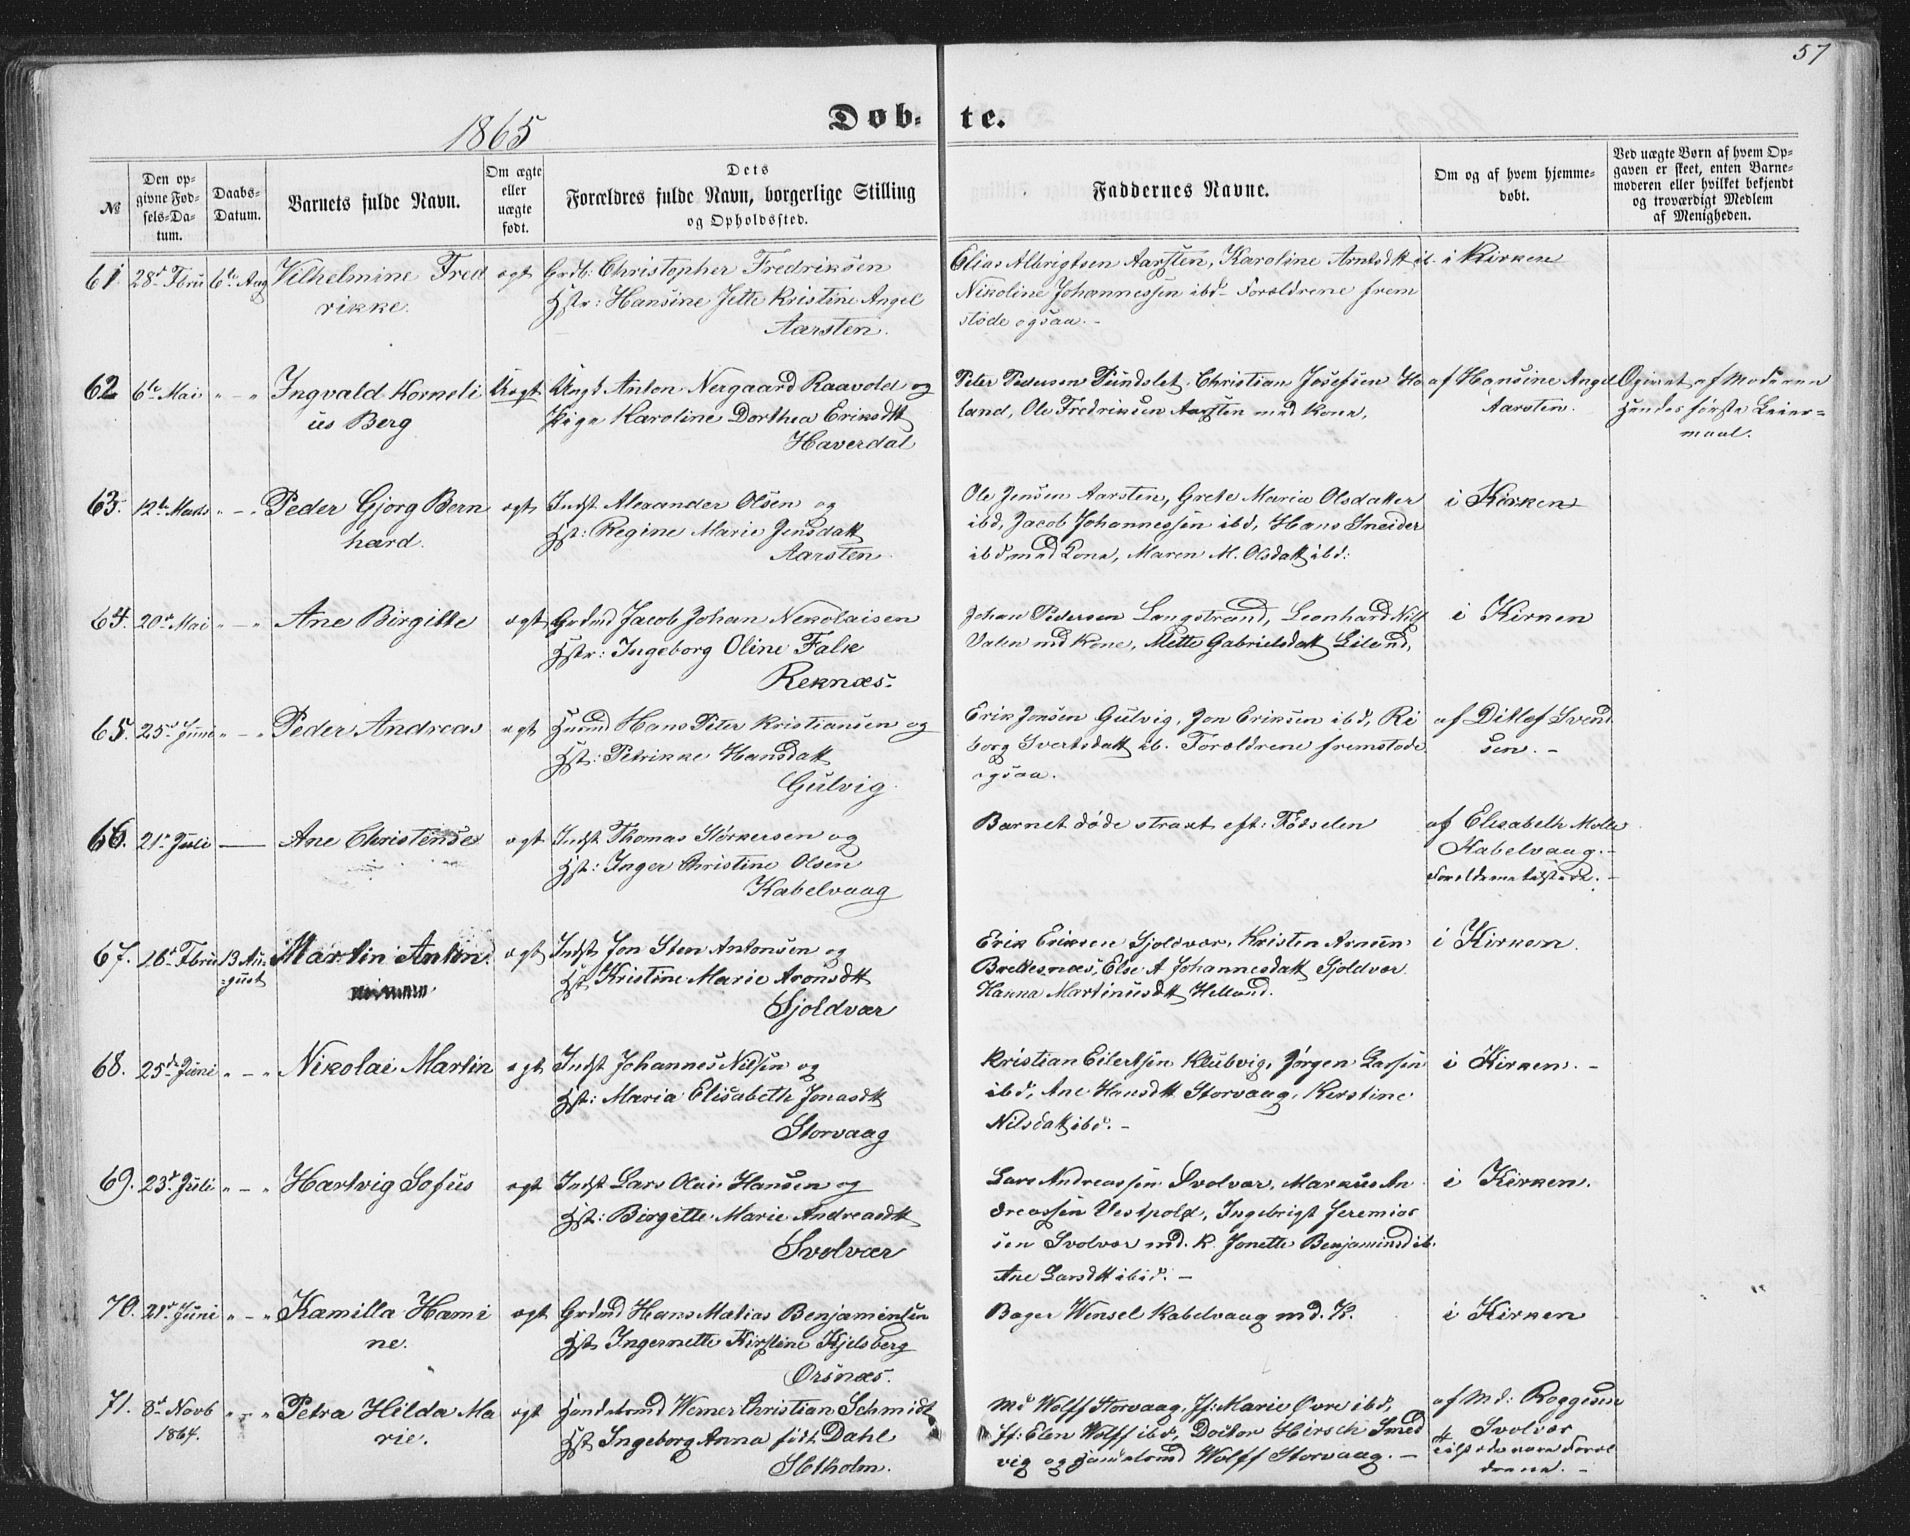 57
1865
Døb- te.
№
Den op-
givne Fød-
sels-Da-
tum.
Daabs-
Datum.
Barnets fulde Navn.
Om ægte
eller
uægte
født.
Dets
Forældres fulde Navn, borgerlige Stilling
og Opholdssted.
Faddernes Navne.
Om og af hvem hjemme-
døbt.
Ved uægte Børn af hvem Op-
gaven er skeet, enten Barne-
moderen eller hvilket bekjendt
og troværdigt Medlem
af Menigheden.
61. 28d. Fbru 6te Aug Vilhelmine Fred
rikke.
ægt Grdb: Christopher Fredriksen
Hstr: Hansine Jette Kristine Angel
Aarsten.
Elias Albrigtsen Aarsten, Karoline Arntsdtt ib.
Nikoline Johannessen ibd. Forældrene frem
støde ogsaa.
i Kirken
62 6te Mai " - " Ingvald Korneli
us Berg
Uægt Ungk Anton Nergaard Raavold og
Pige Karoline Dorthea Eriksdtt
Haverdal
Peter Pedersen Pundslet, Christian Josefsen Ho
land, Ole Fredriksen Aarsten med Kone,
af Hansine Angel
Aarsten.
Ogivet af Moderen
Hendes første Leier=
maal.
63. 12te Marts " - " Peder Gjorg Bern
hard.
ægt Indst Alexander Olsen og
Hst: Regine Marie Jensdatt
Aarsten
Ole Jensen Aarsten, Grete Maria Olsdatter
ibd, Jacob Johannessen ibd, Hans Sneider
ibd med Kone, Maren M. Olsdatt ibd:
i Kirken
64. 20d. Mai " - " Ane Birgitte
ægt Grdmd Jacob Johan Nekolaisen
Hstr: Ingeborg Oline Falk
Reknæs.
Johan Pedersen Langstrand, Leonhard Nils
Valen med Kone, Mette Gabrielsdatt Eiland,
i Kirken
65. 25d. Juni " - " Peder Andreas
ægt Husmd Hans Peter Kristiansen og
Hst: Petrikke Hansdatt
Gulvig.
Erik Jonsen Gulvig, Jon Eriksen ibd, Ri
borg Svertsdatt ib. Forældrene fremstode
ogsaa.
af Ditlef Svend
sen. -
66. 21d. Juli — Ane Christense
ægt Indst Thomas Størkersen og
Hst: Inger Christine Olsen
Kabelvaag
Barnet døde straxt eft: Fødselen
af Elisabeth Molle
Kabelvaag. -
Foreldrene tilstede. -
67. 16d. Fbru 13 Au-
gust Martin Anton
ægt Indst Jon Sten Antonsen og
Hst Kristine Marie Aronsdtt
Sjoldvær
Erik Eriksen Sjoldvær, Kristen Arnsen
Brettesnæs, Else A Johannesdatt Sjoldvær
Hanna Martinusdtt Helland.
i Kirken.
68. 25d. Juni " - " Nikolai Martin
ægt Indst Johannes Nilsen og
Hst: Maria Elisabeth Jonasdtt
Storvaag
Kristian Eilertsen Klubvig, Jørgen Larsen
ibd, Ane Hansdtt Storvaag, Kerstine
Nilsdatt ibd. -
i Kirken. -
69. 23d. Juli " - " Hartvig Sofus
ægt Indst Lars Olai Hansen og
Hst: Birgitte Marie Andreasdtt
Svolvær
Lars Andreassen Svolvær, Markus An
dreassen Vestpold, Ingebrigt Jeremias
sen Svolvær md. K. Jonette Benjaminsd ib.
Ane Larsdtt ibid. -
i Kirken.
70. 21d. Juni " - " Kamilla Hami
ne.
ægt Grdmd Hans Matias Benjaminsen
Hst Ingernette Kirstine Kjelsberg
Ørsnæs.
Bager Wensel Kabelvaag md. K.
i Kirken
71. 8d. Novb
1864. " - " Petra Hilda Ma
rie.
ægt Handelsmd Werner Christian Schmidt
Hst Ingeborg Anna født Dahl
Sletholm.
Md Wolff Storvaag, Jf: Marie Øvre ibd,
Jf: Elen Wolff ibd, Doktor Hirsch Smed
vig og Handelsmd Wolff Storvaag. -
af Md: Roggesen
Svolvær
tilstede vare Foræl
drene. -